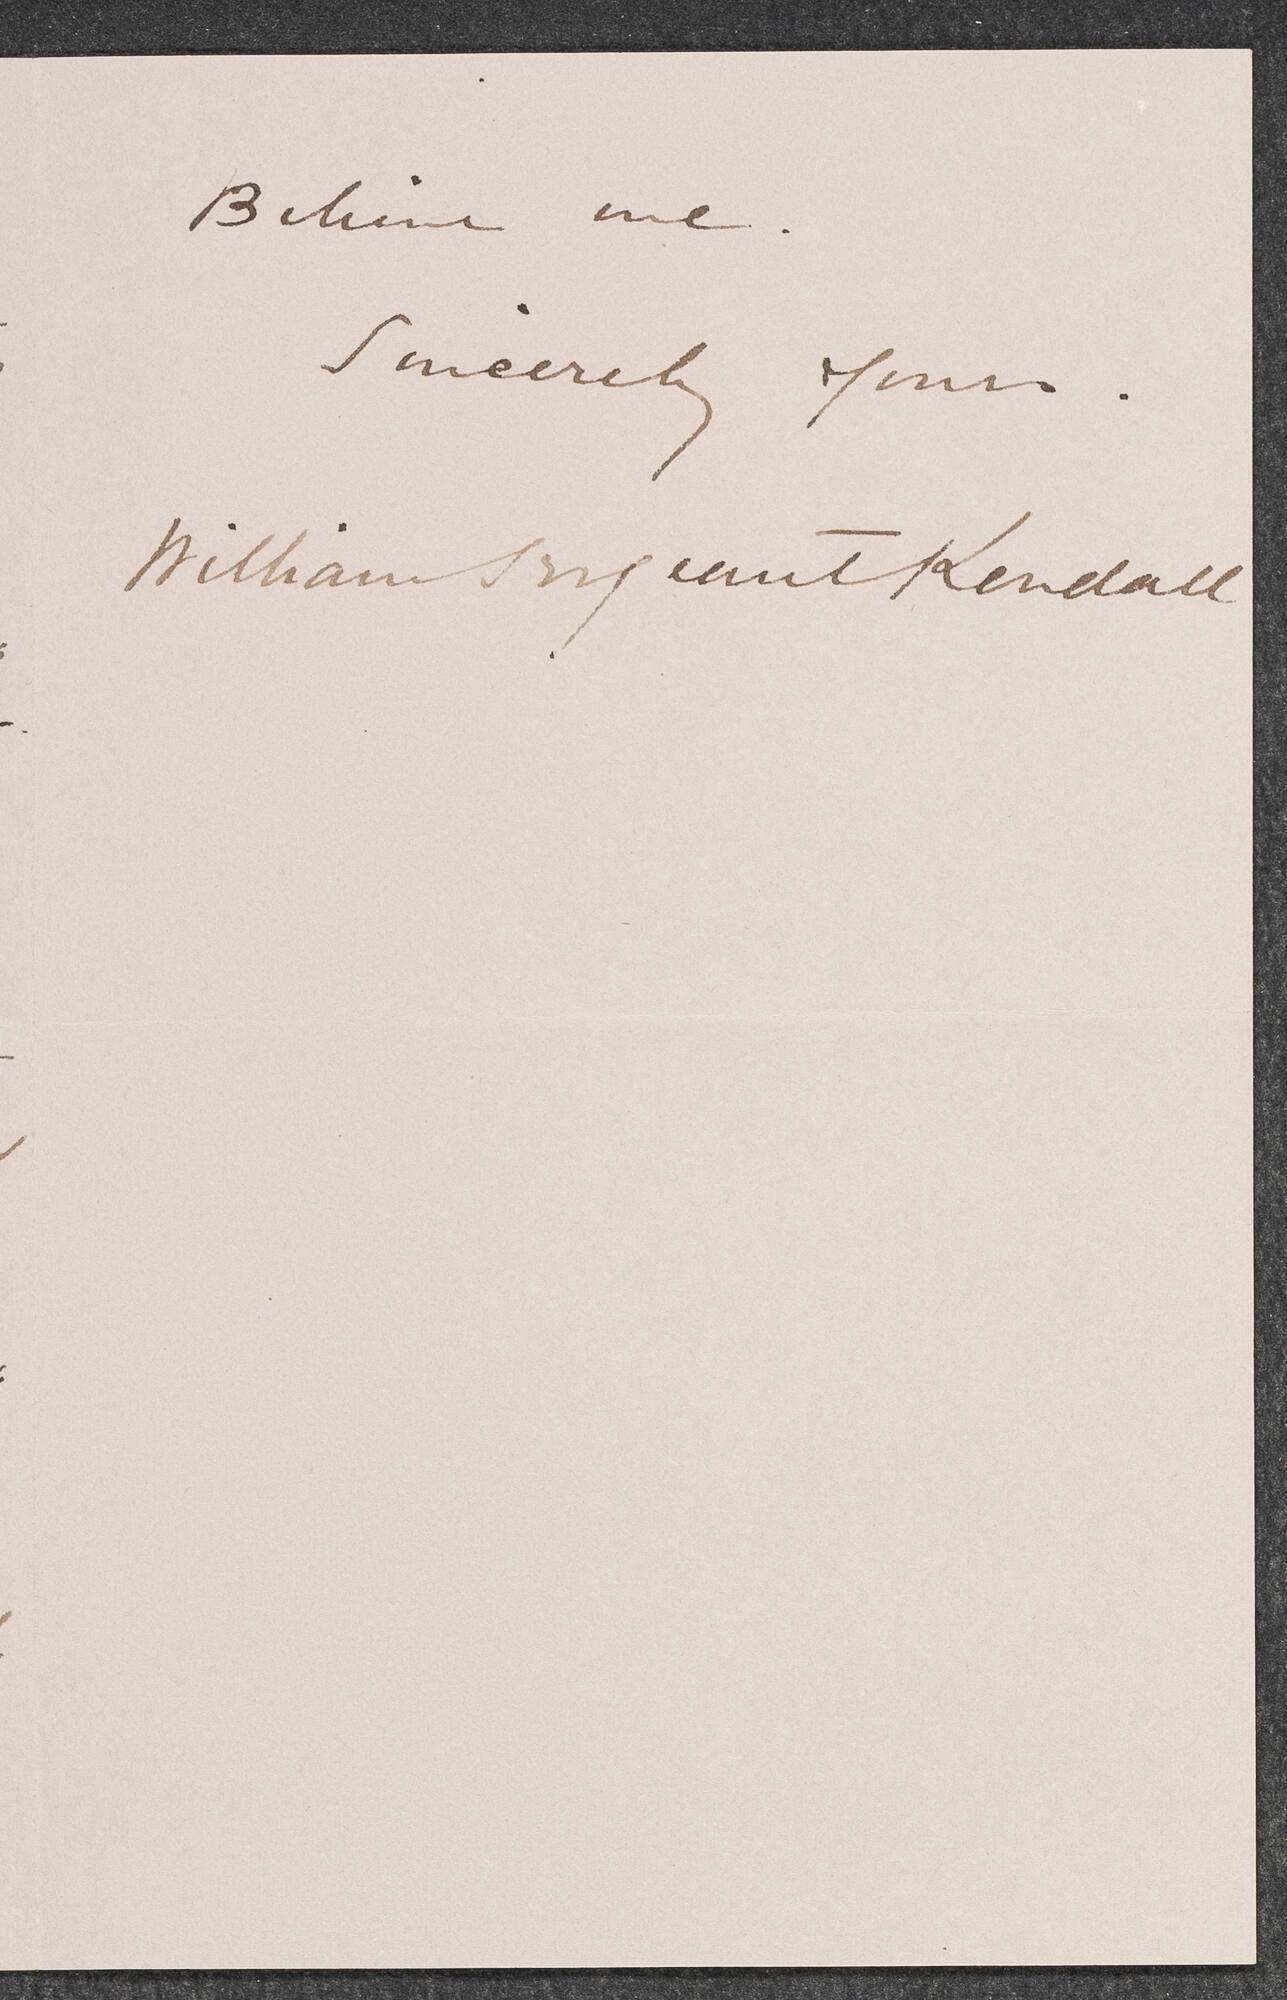 Believe me.
Sincerely Yours.
William Sergeant Kendall